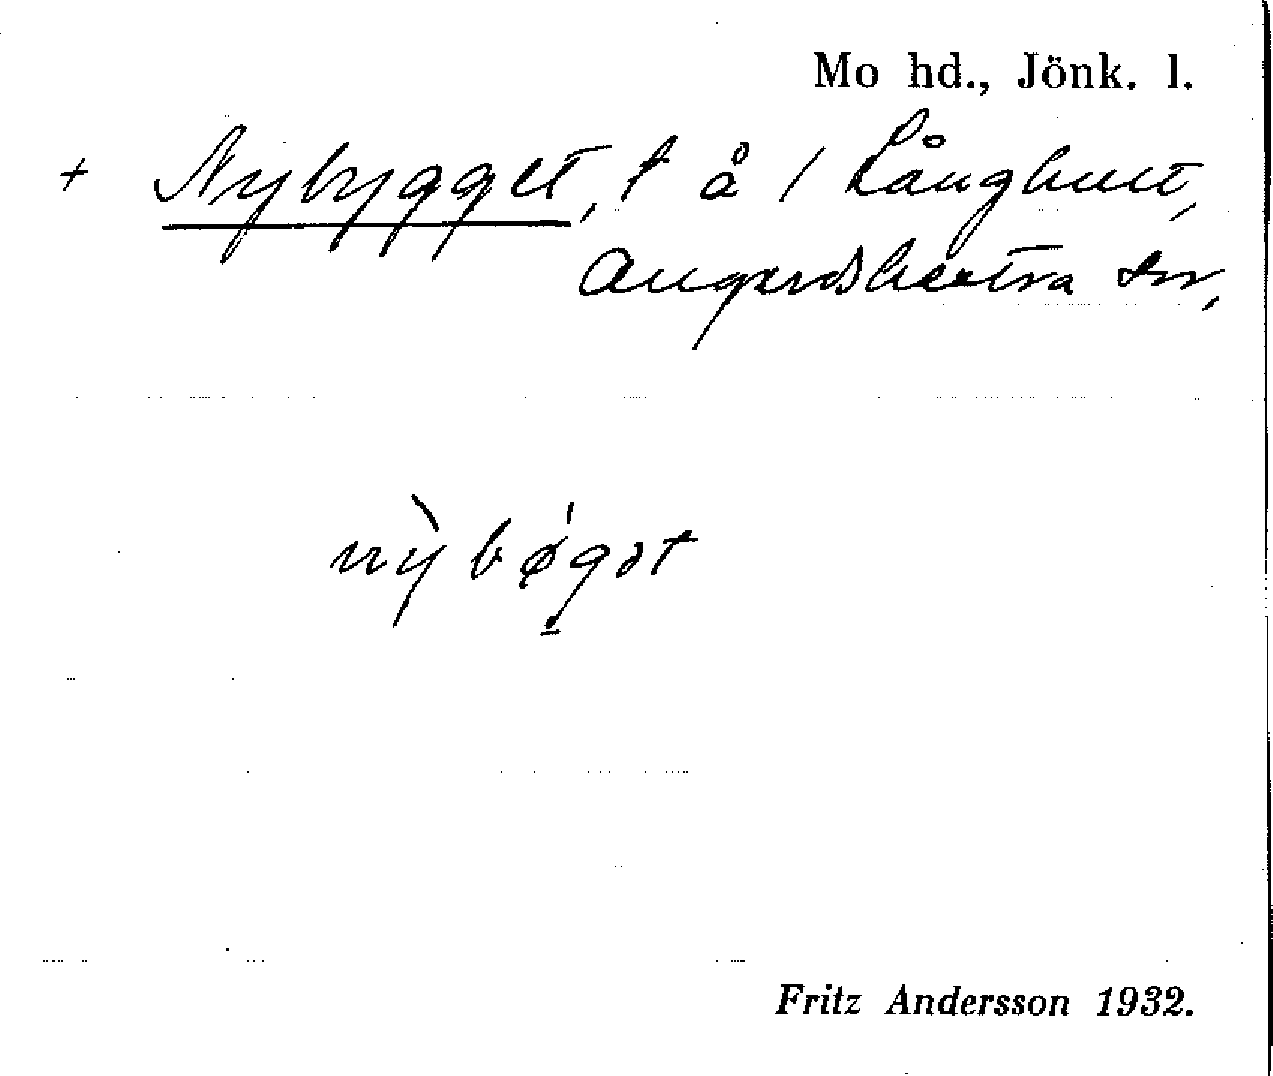 Mo hd., Jönk. l.
+ Nybygget, t å / Långhult,
Angerdshestra sn,
nỳbǿgət
Fritz Andersson 1932.